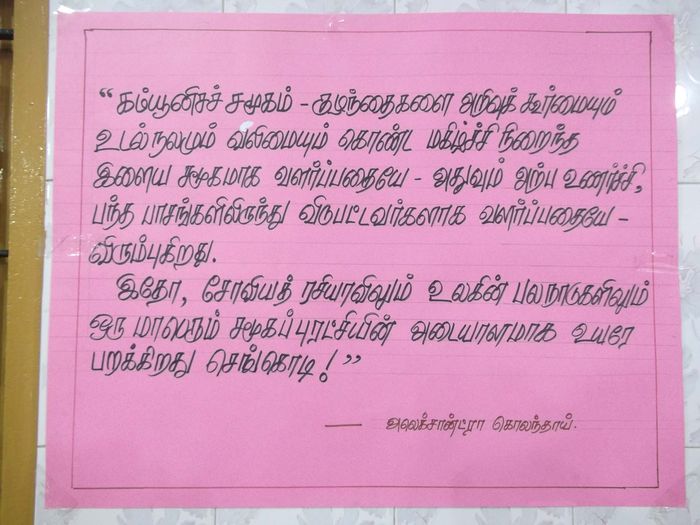 “கம்யூனிசச் சமூகம் - குழந்தைகளை அறிவுக் கூர்மையும்
உடல்நலமும் வலிமையும் கொண்ட மகிழ்ச்சி நிறைந்த
இளைய சமூகமாக வளர்ப்பதையே - அதுவும் அற்ப உணர்ச்சி,
பந்த பாசங்களிலிருந்து விடுபட்டவர்களாக வளர்ப்பதையே -
விரும்புகிறது.
இதோ, சோவியத் ரசியாவிலும் உலகின் பலநாடுகளிலும்
ஒரு மாபெரும் சமூகப்புரட்சியின் அடையாளமாக உயரே
பறக்கிறது செங்கொடி!”
— அலெக்சாண்ட்ரா கொலந்தாய்.